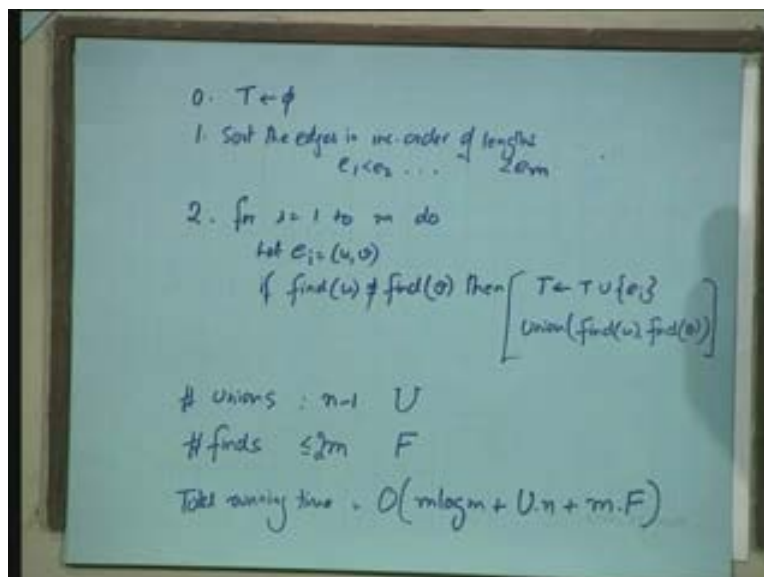 0. T ← φ
1. Sort the edges in inc. order of lengths
e₁<e₂ ... <em
2. for i = 1 to m do
Let eᵢ = (u,v)
if find(u) ≠ find(v) then [ T ← T ∪ {eᵢ}
Union(find(u), find(v)) ]
# Unions : n-1 U
# finds ≤2m F
Total running time = O(mlogm + U.n + m.F)